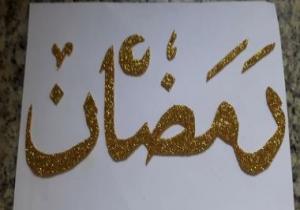 رَمَضَان